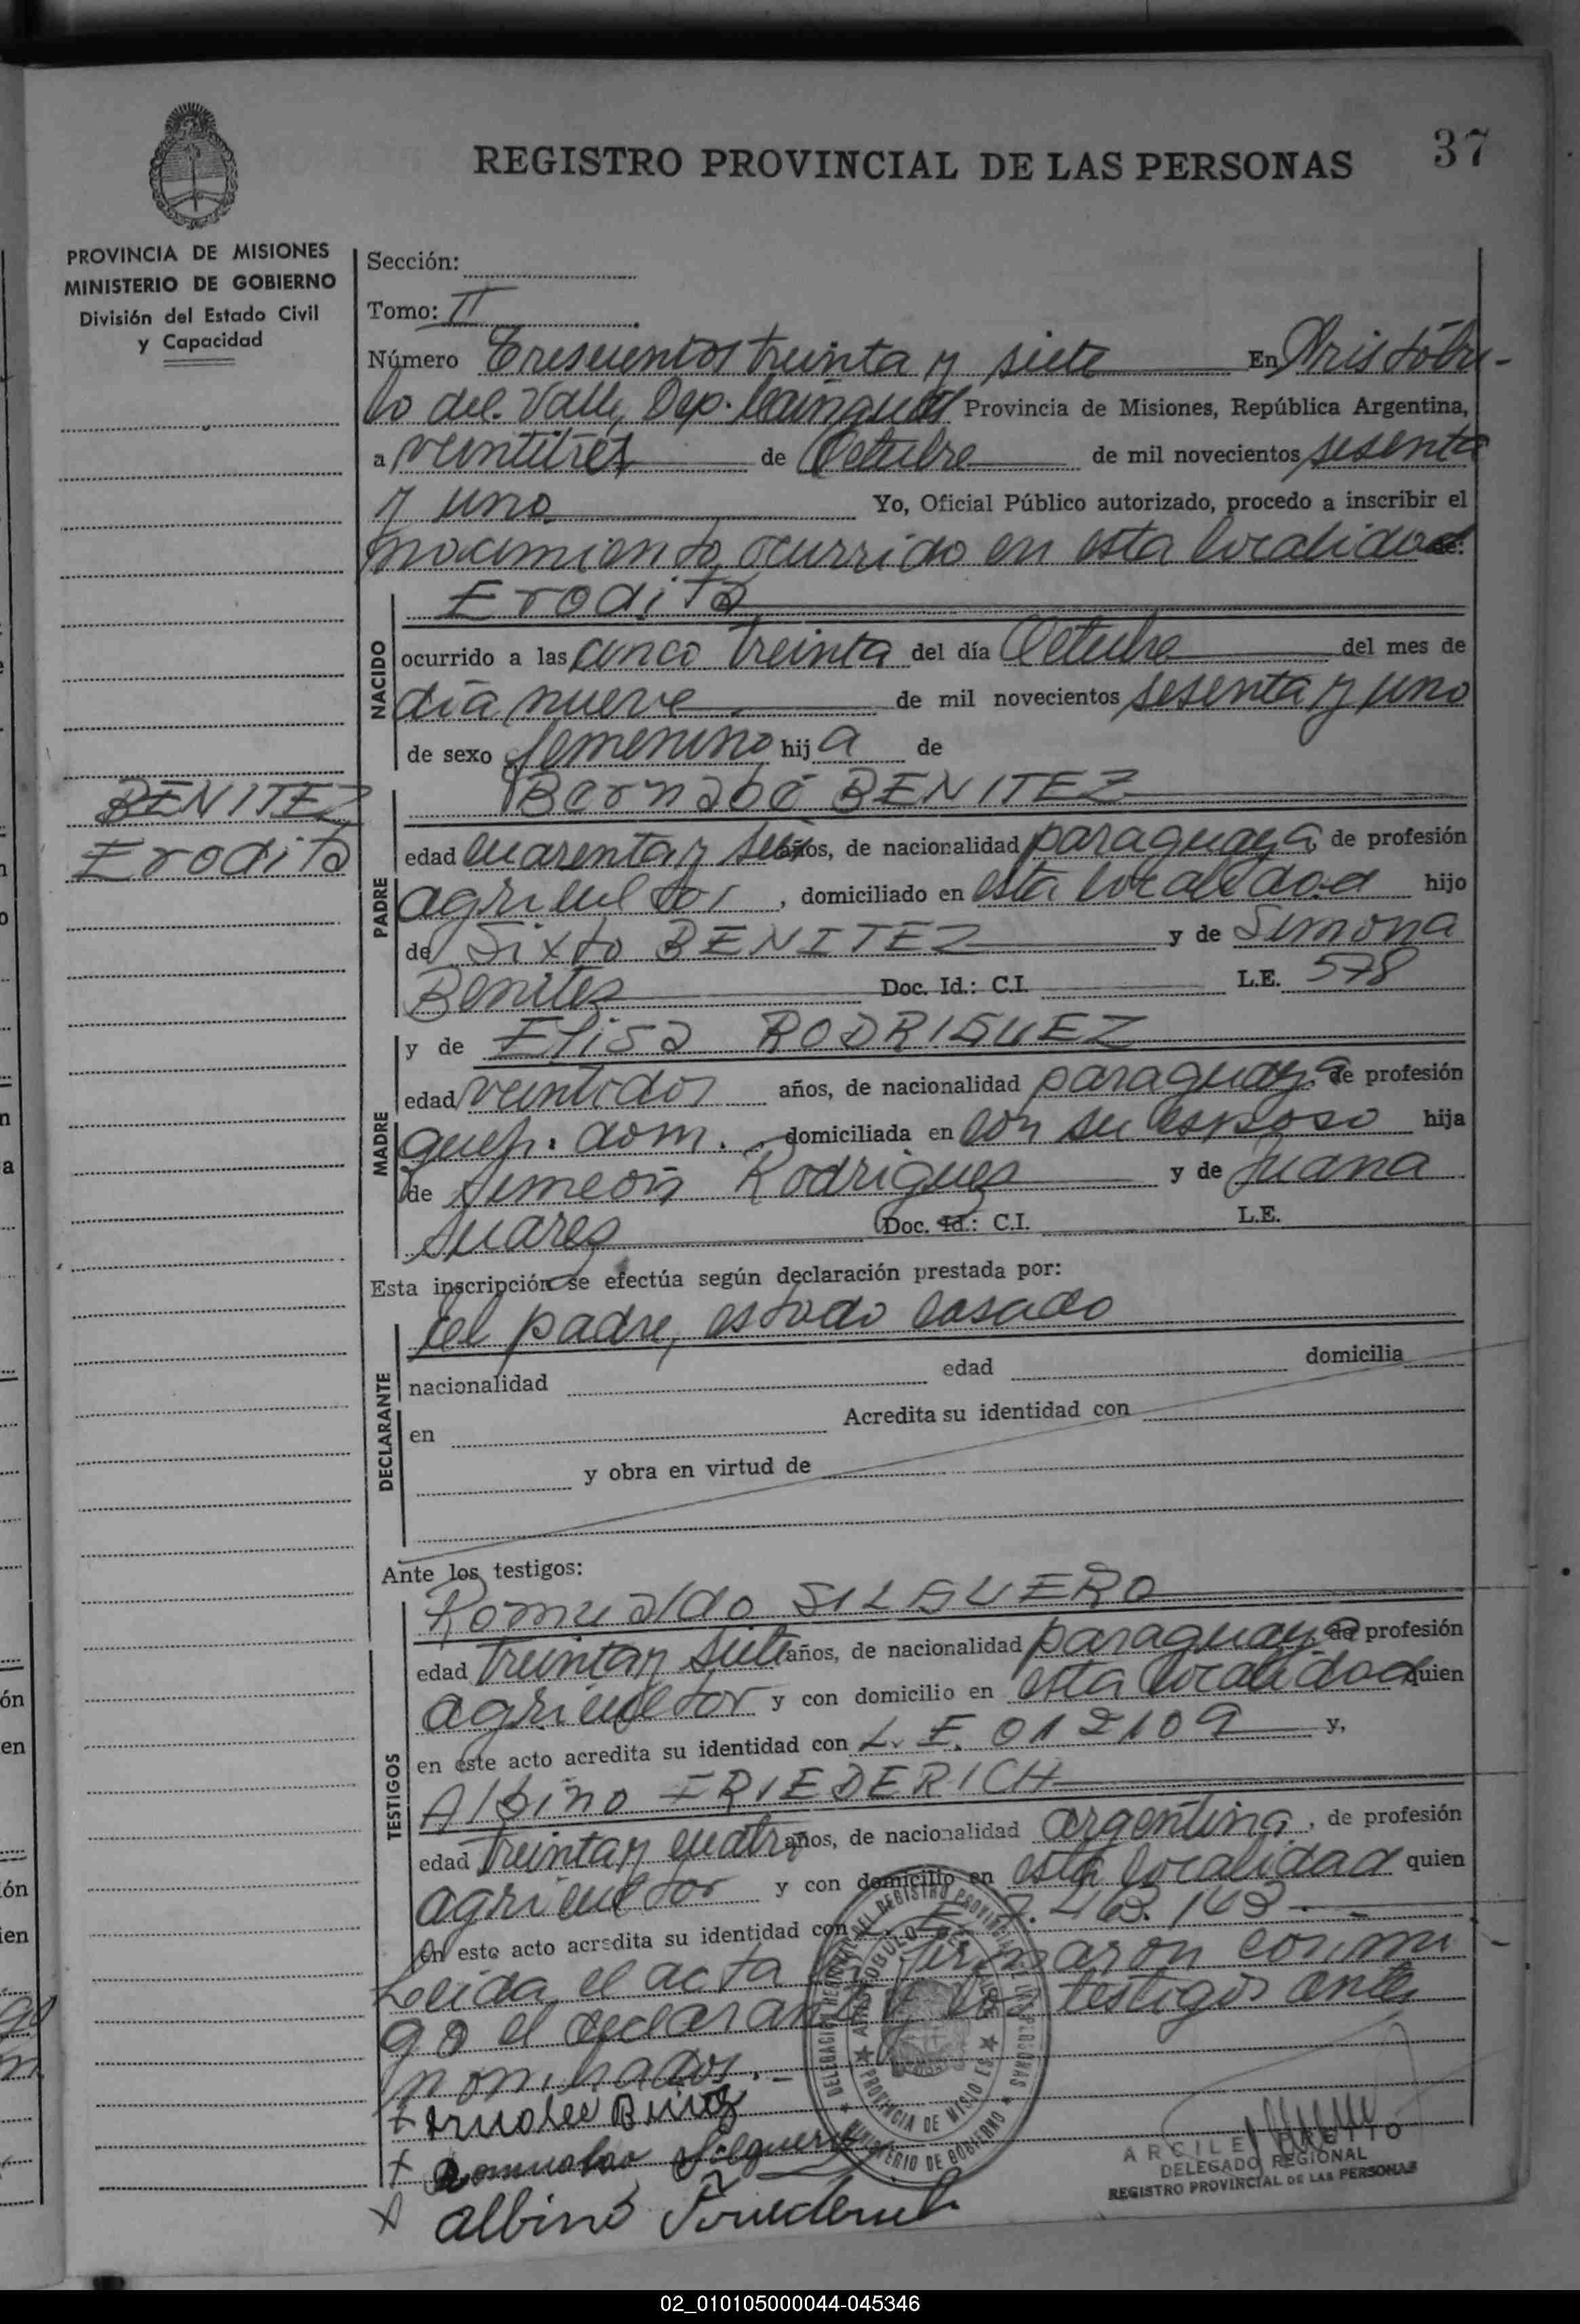 37
REGISTRO PROVINCIAL DE LAS PERSONAS
PROVINCIA DE MISIONES
MINISTERIO DE GOBIERNO
División del Estado Civil
y Capacidad
Sección:
Tomo: II
Número Trescientos treinta y siete En Aristóbu-
lo del Valle, Dep. Cainguás Provincia de Misiones, República Argentina,
a veintitres de Octubre de mil novecientos sesenta
y uno Yo, Oficial Público autorizado, procedo a inscribir el
nacimiento, ocurrido en esta localidad de:
Erodita
NACIDO
ocurrido a las cinco treinta del día Octubre del mes de
día nueve de mil novecientos sesenta y uno
de sexo femenino hija de
BENITEZ
Erodita
PADRE
Bernabé BENITEZ
edad cuarenta y seis años, de nacionalidad paraguaya, de profesión
agricultor, domiciliado en esta localidad hijo
de Sixto BENITEZ y de Simona
Benites Doc. Id.: C.I. L.E. 578
MADRE
y de Elisa RODRIGUEZ
edad veintidos años, de nacionalidad paraguaya de profesión
queh. dom. domiciliada en con su esposo hija
de Simeón Rodriguez y de Juana
Suarez Doc. Id.: C.I. L.E.
Esta inscripción se efectúa según declaración prestada por:
DECLARANTE
el padre, estado casado
nacionalidad edad domicilia
en Acredita su identidad con
y obra en virtud de
Ante los testigos:
TESTIGOS
Romualdo SILGUERO
edad treinta y siete años, de nacionalidad paraguaya de profesión
agricultor y con domicilio en esta localidad quien
en este acto acredita su identidad con L.E. 012109 y,
Albino FRIEDERICH
edad treinta y cuatro años, de nacionalidad argentina, de profesión
agricultor y con domicilio en esta localidad quien
en este acto acredita su identidad con L. E. 7.463.143.-
Leida el acta la firmaron conmi
go el declarante y los testigos antes
nombrados.-
DELEGACION REGIONAL DEL REGISTRO PROVINCIAL DE LAS PERSONAS
ARISTOBULO DEL VALLE
PROVINCIA DE MISIONES
MINISTERIO DE GOBIERNO
Romualdo Silguero
Albino Friederich
DELEGADO REGIONAL
REGISTRO PROVINCIAL DE LAS PERSONAS
02_010105000044-045346